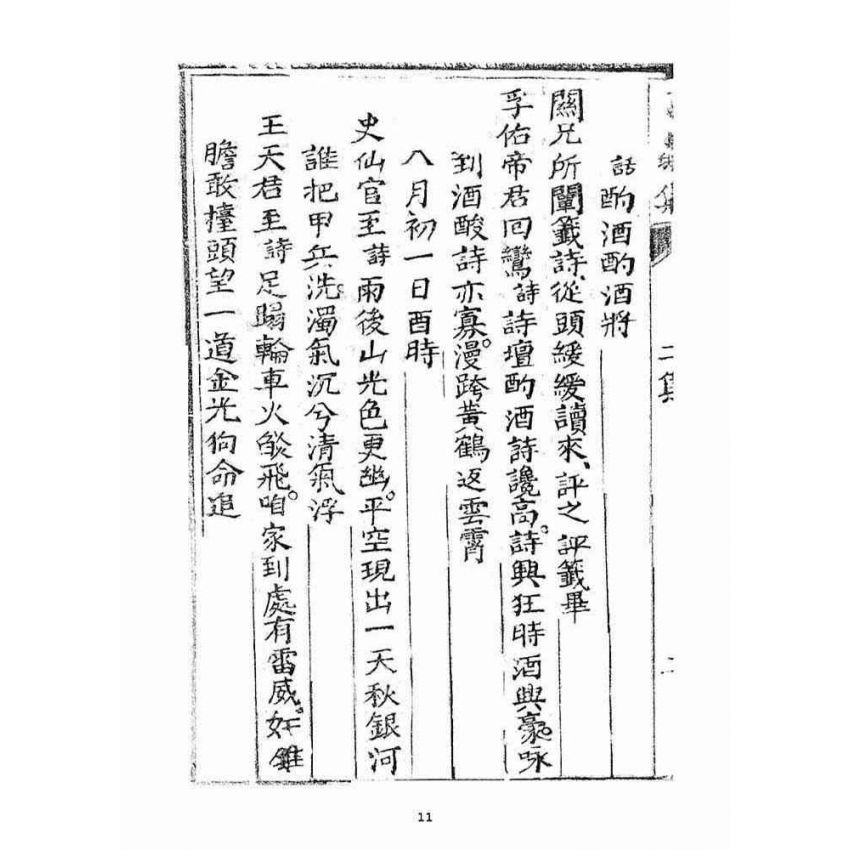 集
二集
二
話 酌酒酌酒將
關兄所闡籤詩、從頭緩緩讀來、評之 評籤畢
孚佑帝君回鸞 詩 詩壇酌酒詩讒高。詩興狂時酒興豪。咏
到酒酸詩亦寡。漫跨黃鶴返雲霄
八月初一日酉時
史仙官至 詩 雨後山光色更幽。平空現出一天秋銀河
誰把甲兵洗。濁氣沉兮清氣浮
王天君至 詩 足蹋輪車火燄飛。咱家到處有雷威。奸雄
膽敢擡頭望一道金光狗命追
11